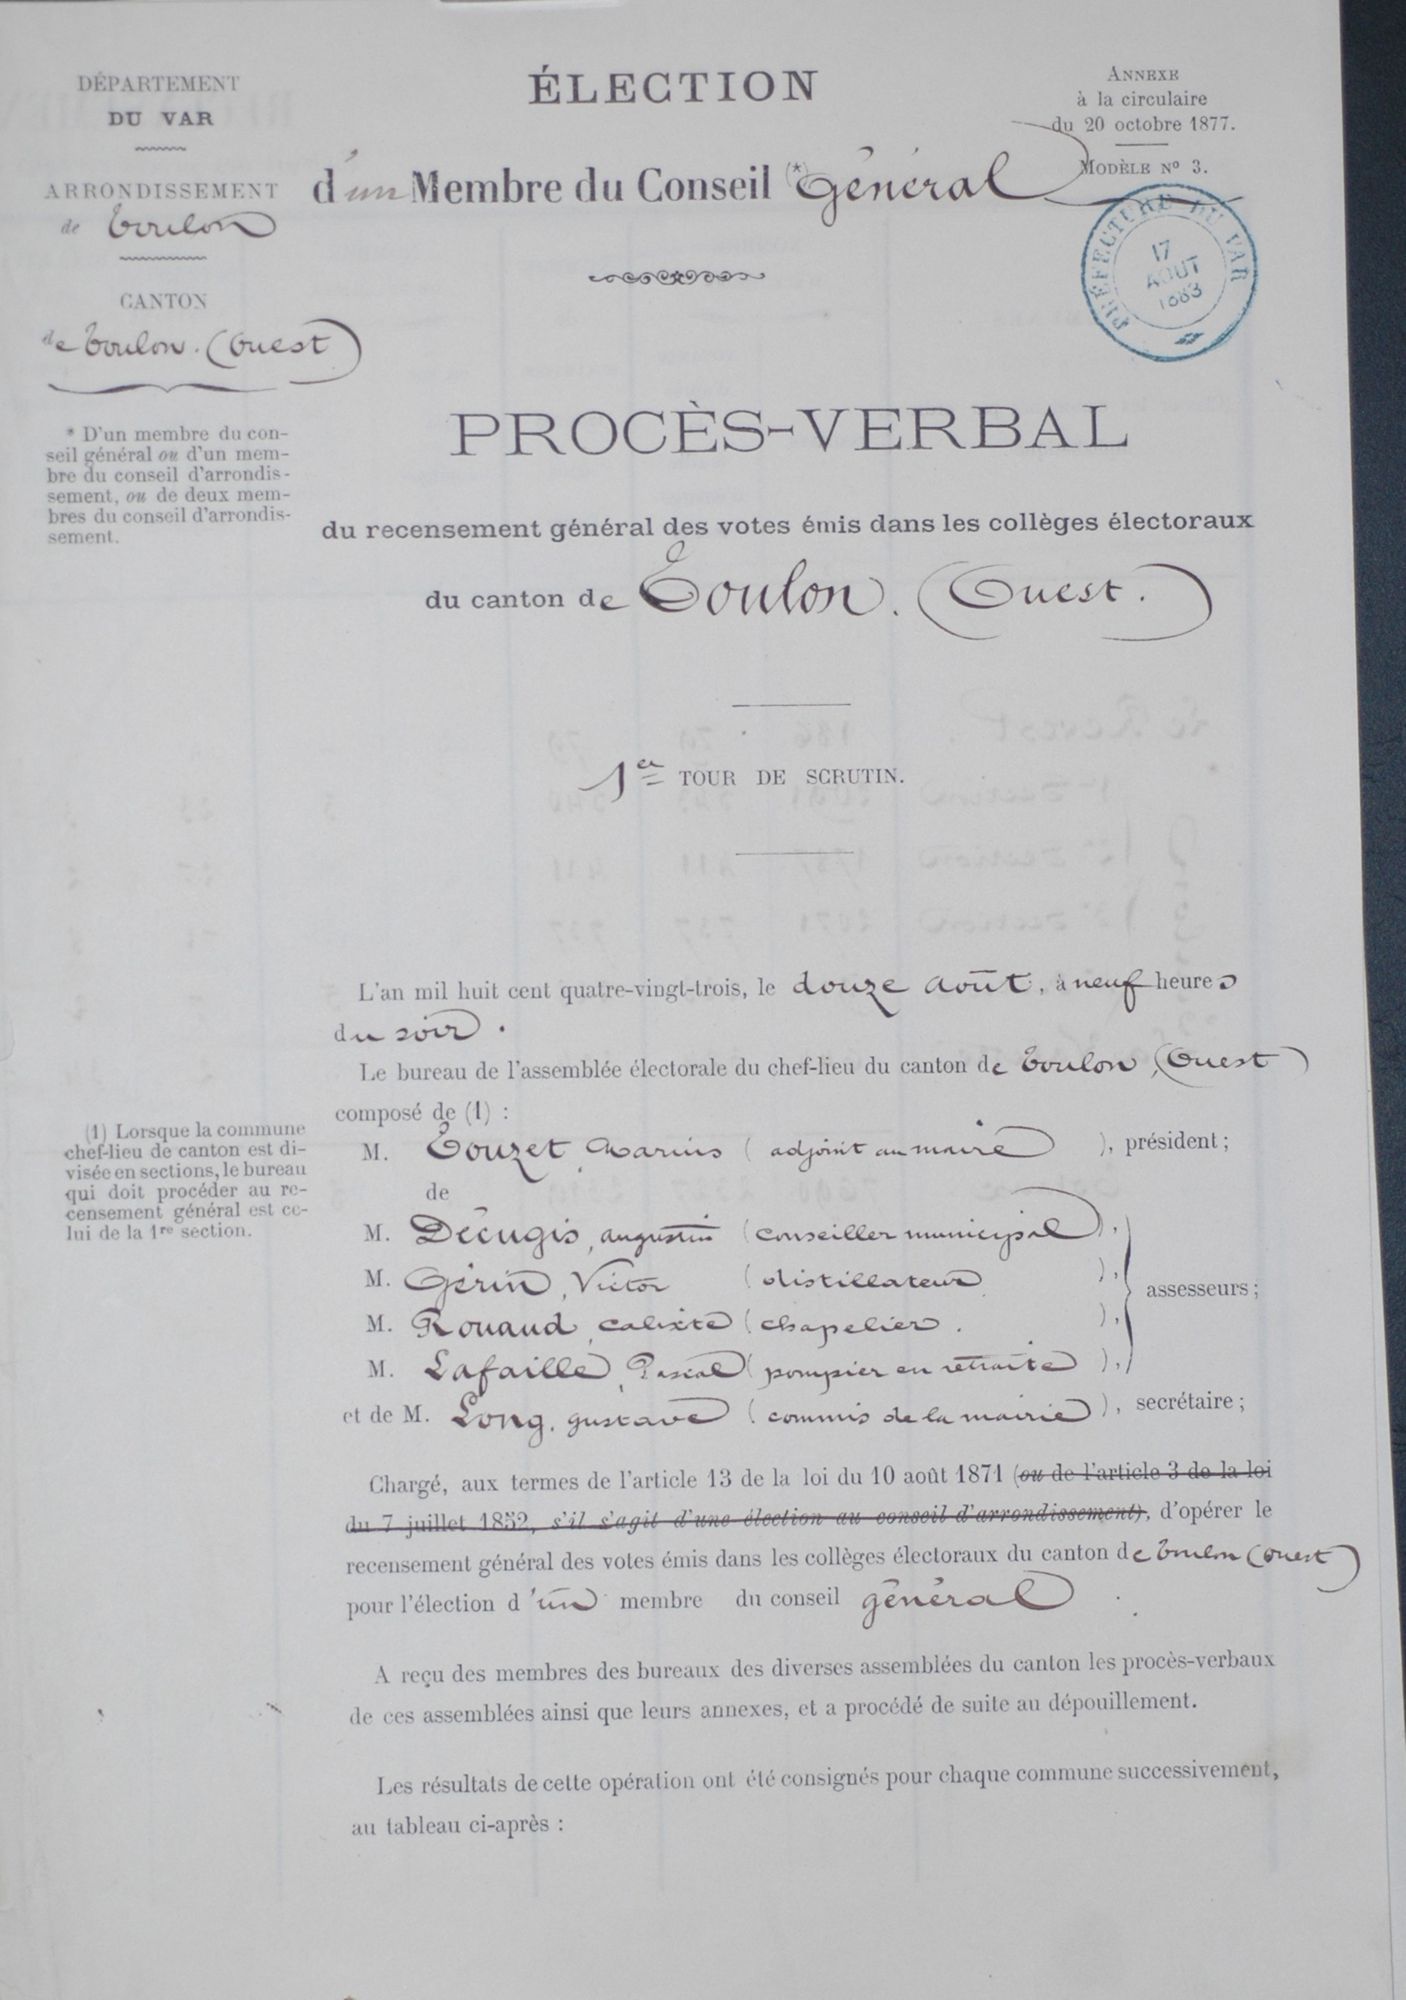 DÉPARTEMENT
DU VAR
ARRONDISSEMENT
de Toulon
CANTON
de Toulon. (Ouest)
* D'un membre du con-
seil général ou d'un mem-
bre du conseil d'arrondis-
sement, ou de deux mem-
bres du conseil d'arrondis-
sement.
ÉLECTION
d'un Membre du Conseil (*) Général
ANNEXE
à la circulaire
du 20 octobre 1877.
MODÈLE Nº 3.
PRÉFECTURE DU VAR
17
AOUT
1883
PROCÈS-VERBAL
du recensement général des votes émis dans les collèges électoraux
du canton de Toulon. (Ouest.)
1er TOUR DE SCRUTIN.
L'an mil huit cent quatre-vingt-trois, le douze août, à neuf heures
du soir.
Le bureau de l'assemblée électorale du chef-lieu du canton de Toulon, (Ouest)
composé de (1) :
(1) Lorsque la commune
chef-lieu de canton est di-
visée en sections, le bureau
qui doit procéder au re-
censement général est ce-
lui de la 1re section.
M. Touzet, Marius (adjoint au maire), président ;
de
M. Décugis, augustin (conseiller municipal),
M. Gérin, Victor (distillateur),
assesseurs ;
M. Rouaud, calixte (chapelier.),
M. Lafaille, Pascal (pompier en retraite),
et de M. Long, gustave (commis de la mairie), secrétaire ;
Chargé, aux termes de l'article 13 de la loi du 10 août 1871 (ou de l'article 3 de la loi
du 7 juillet 1852, s'il s'agit d'une élection au conseil d'arrondissement), d'opérer le
recensement général des votes émis dans les collèges électoraux du canton de Toulon (ouest)
pour l'élection d'un membre du conseil général.
A reçu des membres des bureaux des diverses assemblées du canton les procès-verbaux
de ces assemblées ainsi que leurs annexes, et a procédé de suite au dépouillement.
Les résultats de cette opération ont été consignés pour chaque commune successivement,
au tableau ci-après :